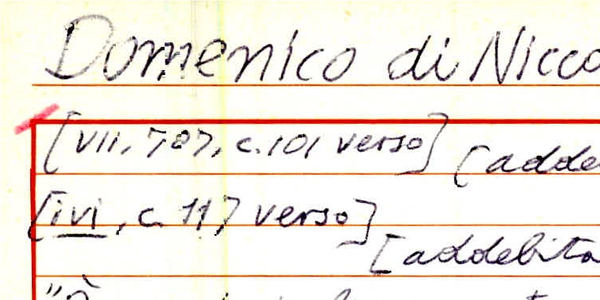 Domenico di Nicco
[VII, 787, c. 101 verso] [adde
[ivi, c. 117 verso]
[addebita
"